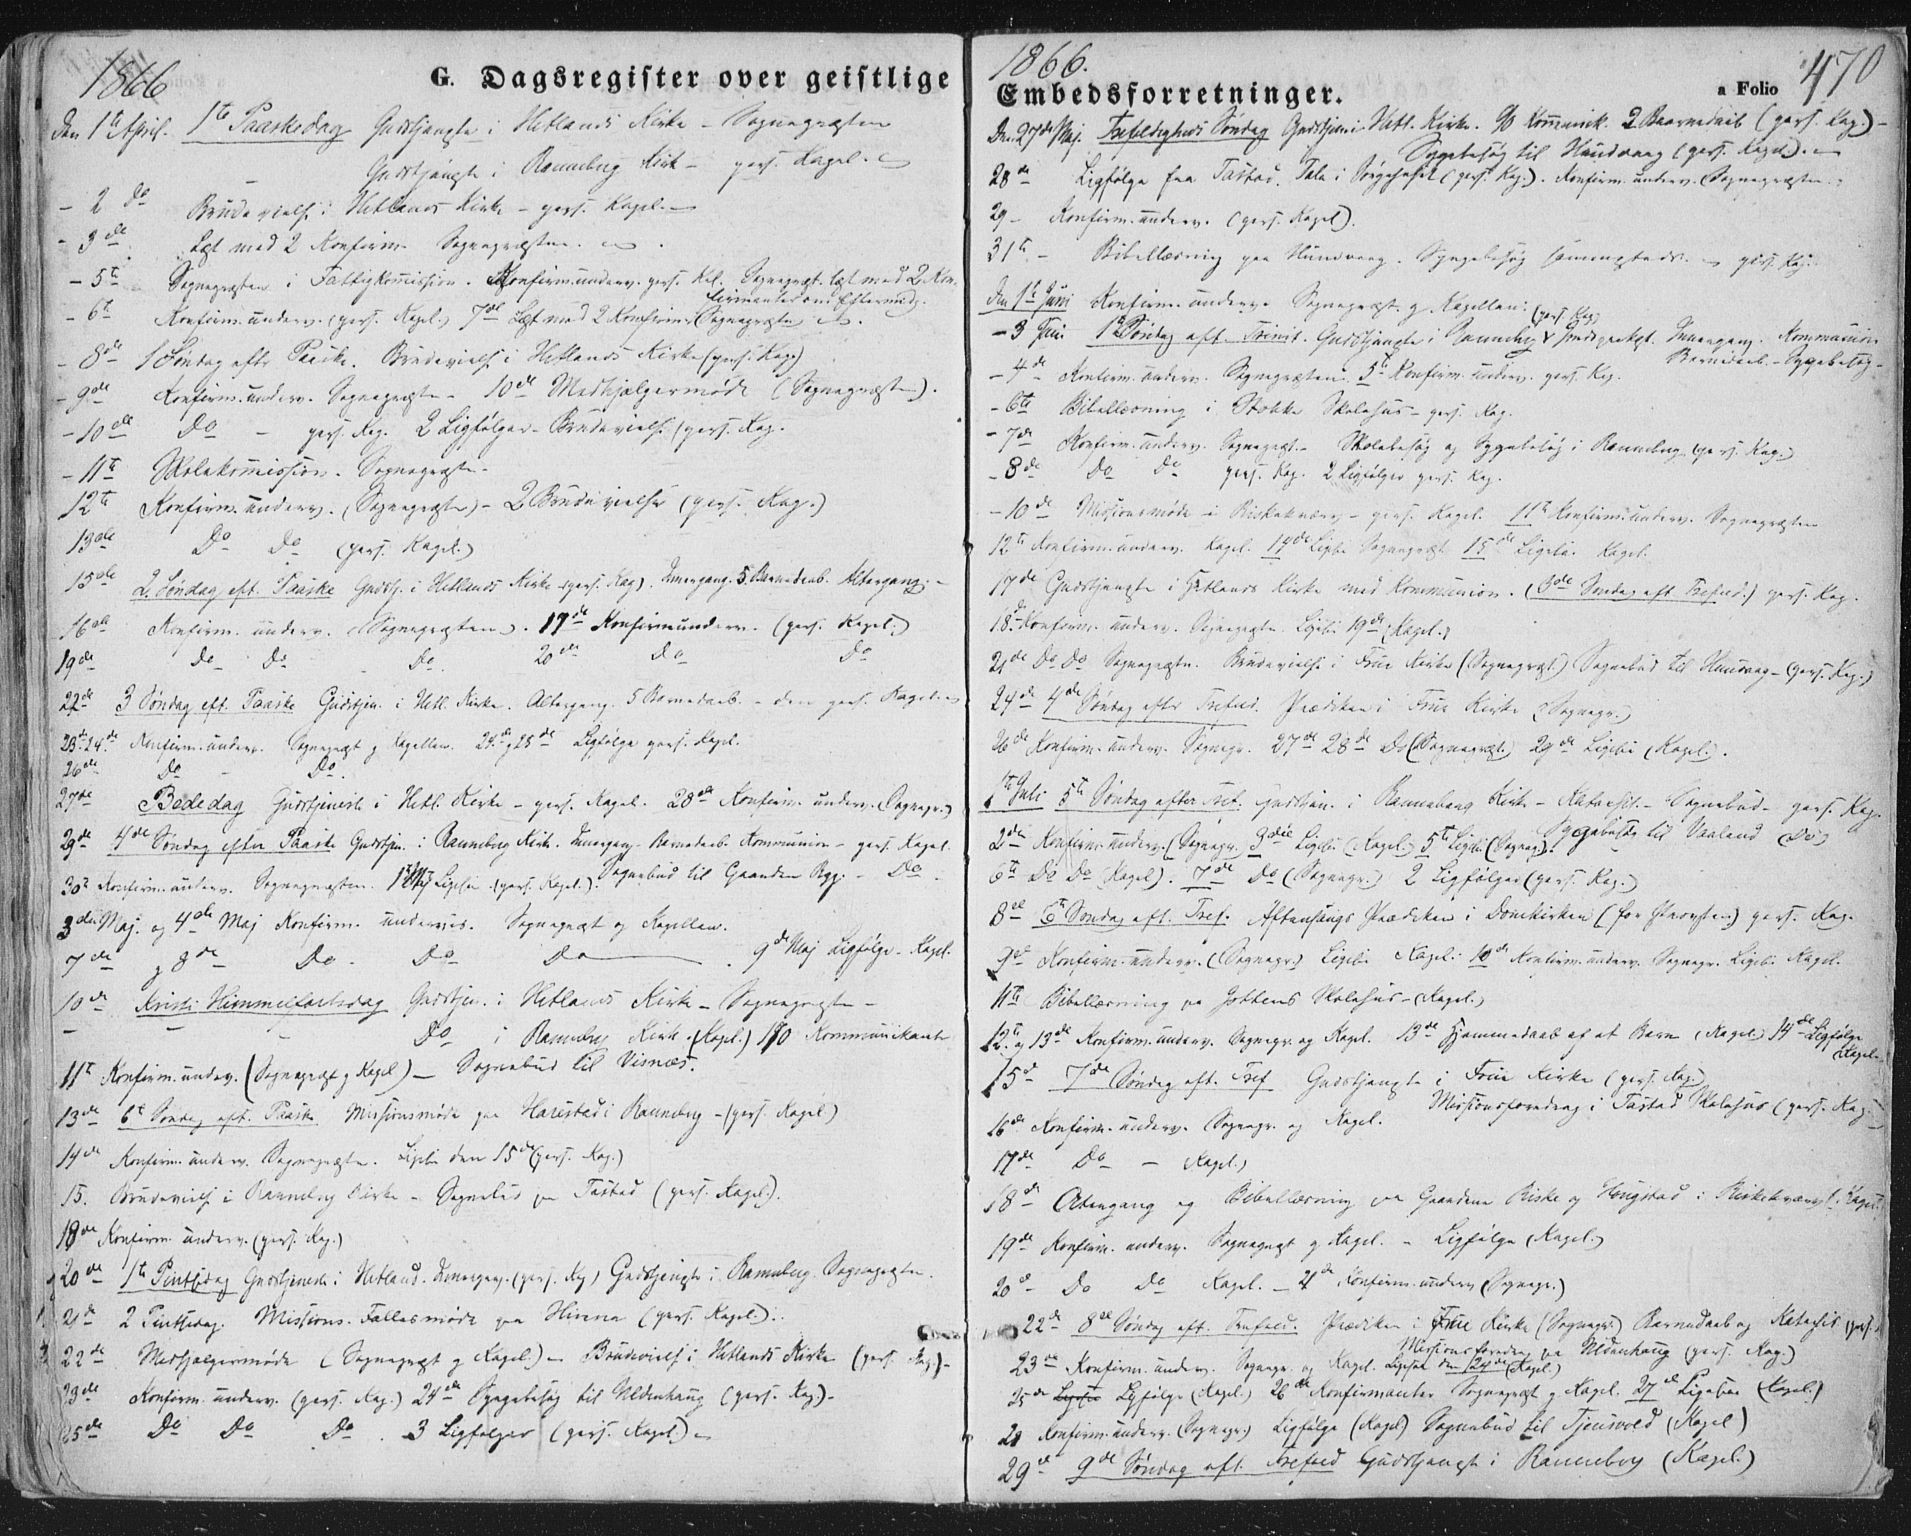 1866
G. Dagsregister over geistlige
Den 1ste April. 1ste Paaskedag Gudstjeneste i Hetlands Kirke - Sognepræsten
Gudstjeneste i Ranneberg Kirk - pers. Kapel.
- 2 do Brudevielse i Hetlands Kirke - pers. Kapel.
- 3de Læst med 2 Konfirm. Sognepræsten.
- 5te Sognepræsten i Fattigkomission. Konfirm. underv. pers. Kpl. Sognepræst. læst med 2 Kon-
firmanter om Eftermidg.
- 6te Konfirm. underv. (pers. Kapel.) 7de Læst med 2 Konfirm. (Sognepræsten)
- 8de 1 Søndag efter Paaske. Brudevielse i Hetlands Kirke (pers. Kap.)
- 9de Konfirm. underv. Sognepræsten - 10de Medhjælpermøde (Sognepræsten).
- 10de Do - pers. Kap. 2 Ligfølger - Brudevielse (pers. Kap.
- 11te Skolekomission. Sognepræsten -
12te Konfirm. underv. (Sognepræsten) - 2 Brudevielser (pers. Kap.)
13de Do Do (pers. Kapel.)
15de 2. Søndag eft. Paaske Gudstj. i Hetlands Kirke (pers. Kap). Inneregang. 5 Barnedaab. Altergang. -
16de Konfirm. underv. (Sognepræsten). 17de Konfirm underv. (pers. Kapel.)
19de Do Do Do 20de Do Do
22de 3 Søndag eft. Paaske Gudstjen. i Hetl. Kirke. Altergang. 5 Barnedaab. - den pers. Kapel.
23de 24de Konfirm. underv. Sognepræst og Kapellan. 24de og 25de Ligfølge pers. Kapel.
26de Do - Do.
27de Bededag Gudstjeneste i Hetl. Kirke - pers. Kapel. 28de Konfirm. underv. (Sognepr.)
29de 4de Søndag efter Paaske Gudstjen. i Ranneberg Kirk. Barnedaab. Kommunion - pers. Kapel.
30te Konfirm. underv. Sognepræsten. 1ste Maj (pers. Kapel.). Sognebud til Gaarden - Do -
3die Maj. og 4de Maj Konfirm. undervis. Sognepræst og Kapellan.
7de og 8de Do - Do Do 9de Maj Ligfølge - Kapel.
10de Kristi Himmelfartsdag Gudstjen. i Hetlands Kirke - Sognepræsten -
- - - Do i Ranneberg Kirk. (Kapel.) 110 Kommunikanter
11te Konfirm. underv. (Sognepræst og Kapel) - Sognebud til Visnæs.
13de 6te Søndag eft. Paaske Missionsmøde paa Harestad i Ranneberg - (pers. Kapel)
14de Konfirm. underv. Sognepræsten. den 15de (pers. Kap.)
15. Brudevielse i Ranneberg Kirke - Sognebud paa Tastad (pers. Kapel.).
18de Konfirm. underv. (pers. Kap.)
20de 1ste Pintsedag Gudstjeneste i Hetland. (pers. Kap) Gudstjeneste i Ranneberg. Sognepræsten.
21de 2 Pintsedag. Missions-Fællesmøde paa Hinna (pers. Kapel.).
22de Medhjælpermøde (Sognepræst og Kapel.) - Brudevielse i Hetlands Kirke (pers. Kap.) -
23de Konfirm. underv. (pers. Kap.) 24de Sygebesøg til Uldenhaug (pers. Kap) -
25de Do Do Do . 3 Ligfølger (pers. Kapel.) -
1866.
Embedsforretninger.
a Folio 470
Den 27de Maj. Trefoldigheds Søndag Gudstjen. i Hetl. Kirke. 90 Komunik. 2 Barnedaab (pers. Kap.) -
Sygebesøg til Hundvaag (pers. Kapel). -
28de Ligfølge fra Tastad. Tale i Sørgehuset (pers. Kap.). Konfirm. underv. (Sognepræsten.
29 - Konfirm. underv. (pers. Kapel).
31te - Bibellæsning paa Hundvaag. Sygebesøg sammesteds. pers. Kap.
Den 1ste Juni Konfirm. underv. Sognepræst og Kapellan.
- 3 Juni 1ste Søndag eft. Trinit. Gudstjeneste i Ranneberg (pers. Kap) Inneregang. Kommunion
Barnedaab. - Sygebesøg -
- 4de Konfirm. underv. Sognepræsten. 5te Konfirm. underv. pers. Kap.
- 6te Bibellæsning i Stokke Skolehus - pers. Kap.
- 7de Konfirm. underv. Sognepræst. - Skolebesøg og Sygebesøg i Ranneberg (pers. Kap.)
- 8de Do Do pers. Kap. 2 Ligfølger pers. Kap.
- 10de Missionsmøde i Riskekværn - pers. Kapel. 11te Konfirm. underv. Sognepræsten
12te Konfirm. underv. Kapel. 14de Sognepræst 15de Kapel.
17de Gudstjeneste i Hetlands Kirke med Kommunion. (3de Søndag eft. Trefold.) pers. Kap.
18de Konfirm. underv. Sognepræsten. 19de (Kapel.)
21de Do Do Sognepræsten. Brudevielse i Frue Kirke (Sognepræst.) Sognebud til Hundvaag - (pers. Kap.)
24de 4de Søndag efter Trefold. Prædiken i Frue Kirke (Sognepr.)
26de Konfirm. underv. Sognepr. 27de 28de Do (Sognepræst.) 29de (Kapel.).
1ste Juli 5te Søndag efter Tref. Gudstjen. i Ranneberg Kirke - Katechis. - Sognebud - pers. Kap.
2den Konfirm. underv. (Sognepr. 3die (Kapel.) 5te (Sognep.). Sygebesøg til Vaaland (Do)
6te Do Do (Kapel). 7de Do (Sognepr.) 2 Ligfølger (pers. Kap.)
8de 6te Søndag eft. Tref. Aftensangs Prædiken i Domkirken (for Provsten) pers. Kap.
9de Konfirm. underv. (Sognepr.) Kapel. 10de Konfirm. underv. Sognepr. Kapel.
11te Bibellæsning paa Jottens Skolehus - (Kapel.)
12te og 13de Konfirm. underv. Sognepr. og Kapel. 13de Hjemmedaab af et Barn (Kapel.) 14de Ligfølge
(Kapel.
15de 7de Søndag eft. Tref Gudstjeneste i Frue Kirke (pers. Kap)
Missionsforedrag i Tastad Skolehus (pers. Kap.)
16de Konfirm. underv. Sognepr. og Kapel.
17de Do - Kapel.)
18de og Bibellæsning paa Gaardene Riske og Haugstad i Riskekværn. Kapel.
19de Konfirm. underv. Sognepræst og Kapel. - Ligfølge (Kapel.)
20de - Do Do Kapel. - 21de Konfirm. underv (Sognepr.)
22de 8de Søndag eft. Trefold. Prædiken i Frue Kirke (Sognepr.) Barnedaab og Katechis (pers.
Missionsforedrag paa Uldenhaug (pers. Kap.)
23de Konfirm. underv. Sognepr. og Kapel. den 24de (Kapel.)
25de Ligfølge (Kapel.) 26de Konfirmanter Sognepræst og Kapel. 27de (Kapel.)
28 Konfirm. underv. (Sognepr.) Ligfølge (Kapel) Sognebud til Tjensvold (Kapel)
29de 9de Søndag eft. Trefold Gudstjeneste i Ranneberg (Kapel.)